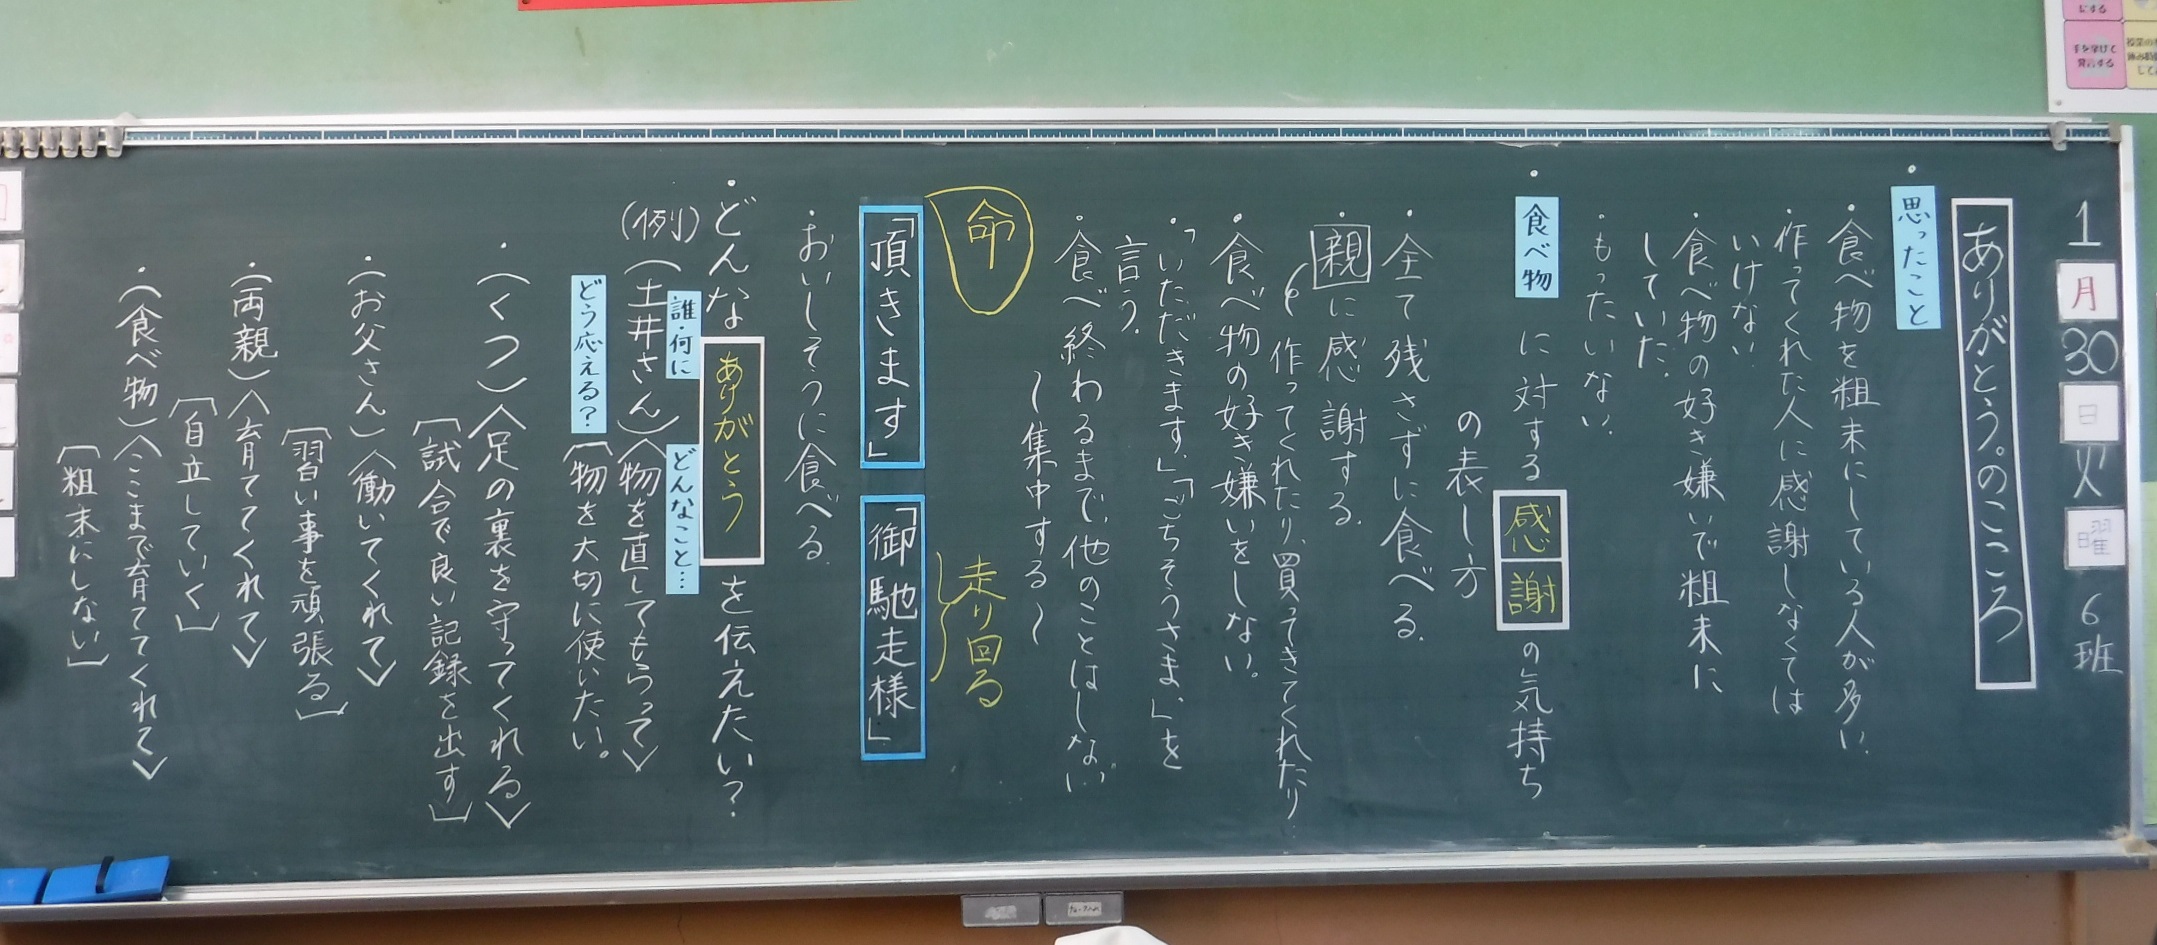 1月30日火曜 6班
ありがとう。のこころ
・思ったこと
・食べ物を粗末にしている人が多い.
・作ってくれた人に感謝しなくては
いけない.
・食べ物の好き嫌いで粗末に
していた.
・もったいない.
・食べ物に対する感謝の気持ち
の表し方
・全て残さずに食べる.
・親に感謝する.
作ってくれたり、買ってきてくれたり
・食べ物の好き嫌いをしない.
・「いただきます.」「ごちそうさま.」を
言う.
・食べ終わるまで、他のことはしない.
〜集中する〜
命
走り回る
「頂きます」「御馳走様」
・おいしそうに食べる.
・どんなありがとうを伝えたい?
誰・何に どんなこと…
(例)(土井さん)〈物を直してもらって〉
どう応える?
[物を大切に使いたい。
・(くつ)〈足の裏を守ってくれる〉
[試合で良い記録を出す]
・(お父さん)〈働いてくれて〉
[習い事を頑張る]
・(両親)〈育ててくれて〉
[自立していく]
・(食べ物)〈ここまで育ててくれて〉
[粗末にしない]
手を挙げて
発言する
にする